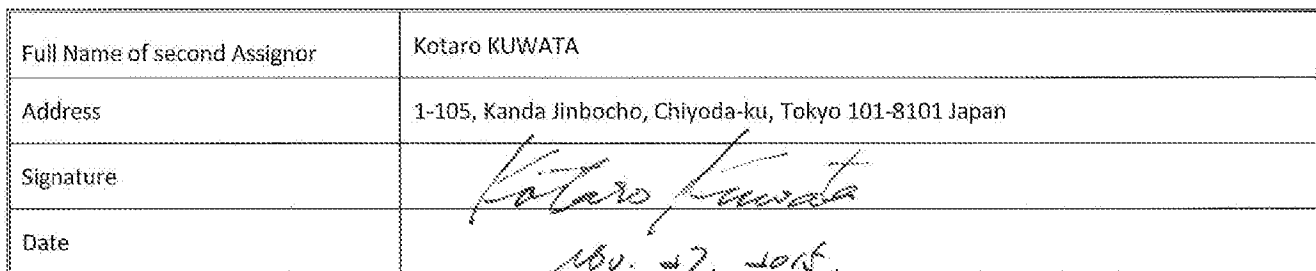 Full Name of second Assignor Kotaro KUWATA
Address 1-105, Kanda Jinbocho, Chiyoda-ku, Tokyo 101-8101 Japan
Signature Kotaro Kuwata
Date Nov. 27, 2015